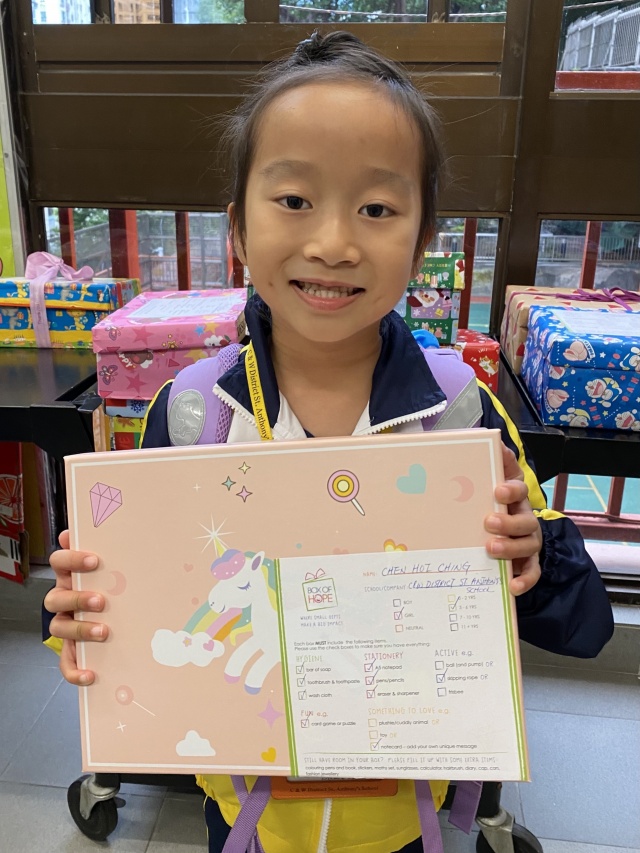 & W District St. Anthony's
NAME: CHEN HOI CHING
BOX OF
HOPE
SCHOOL/COMPANY: C&W DISTRICT ST ANTHONY'S
SCHOOL
WHERE SMALL GIFTS
MAKE A BIG IMPACT
BOY
GIRL
NEUTRAL
4 - 6 YRS
7 - 10 YRS
11 + YRS
Each box MUST include the following items.
Please use the check boxes to make sure you have everything.
HYGIENE
bar of soap
toothbrush & toothpaste
wash cloth
STATIONERY
A5 notepad
pens/pencils
eraser & sharpener
ACTIVE e.g.
ball (and pump) OR
skipping rope OR
frisbee
FUN e.g.
card game or puzzle
SOMETHING TO LOVE e.g.
plushie/cuddly animal OR
toy OR
notecard - add your own unique message
STILL HAVE ROOM IN YOUR BOX? PLEASE FILL IT UP WITH SOME EXTRA ITEMS:
colouring pens and book, stickers, maths set, sunglasses, calculator, hairbrush, diary, cap, coin,
fashion jewellery